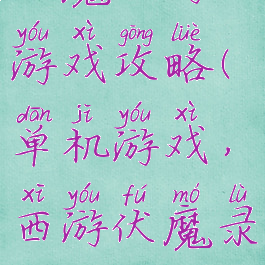 yóu xì gōng lüè
游戏攻略(
dān jī yóu xì
单机游戏,
xī yóu fú mó lù
西游伏魔录